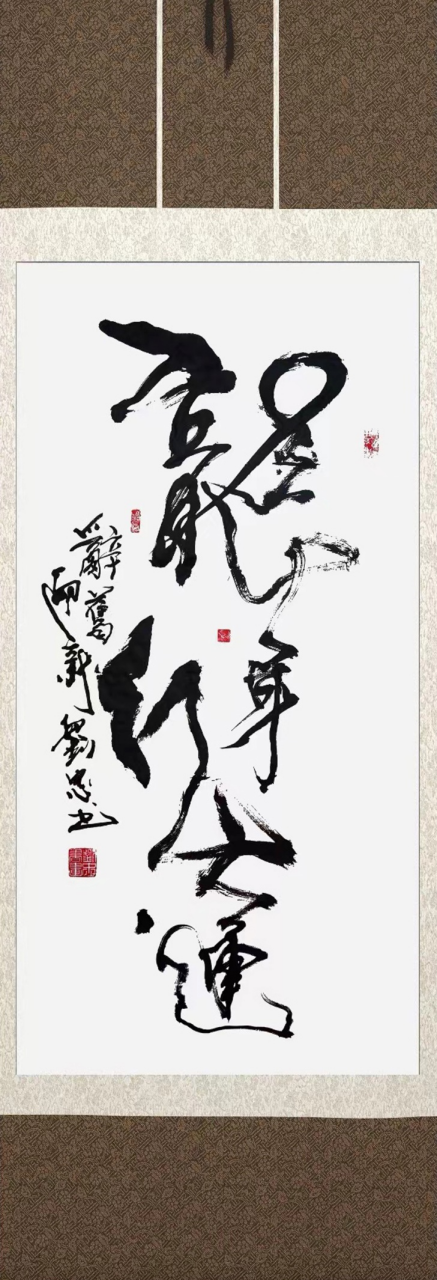 龍年行大運
辭舊迎新劉